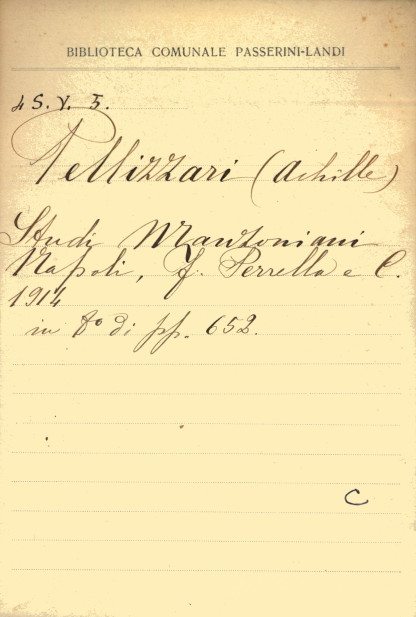 BIBLIOTECA COMUNALE PASSERINI-LANDI
4 S. V. 5.
Pellizzari (Achille)
Studi Manzoniani
Napoli, F. Perrella e C.
1914
in 8º di pp. 652.
C